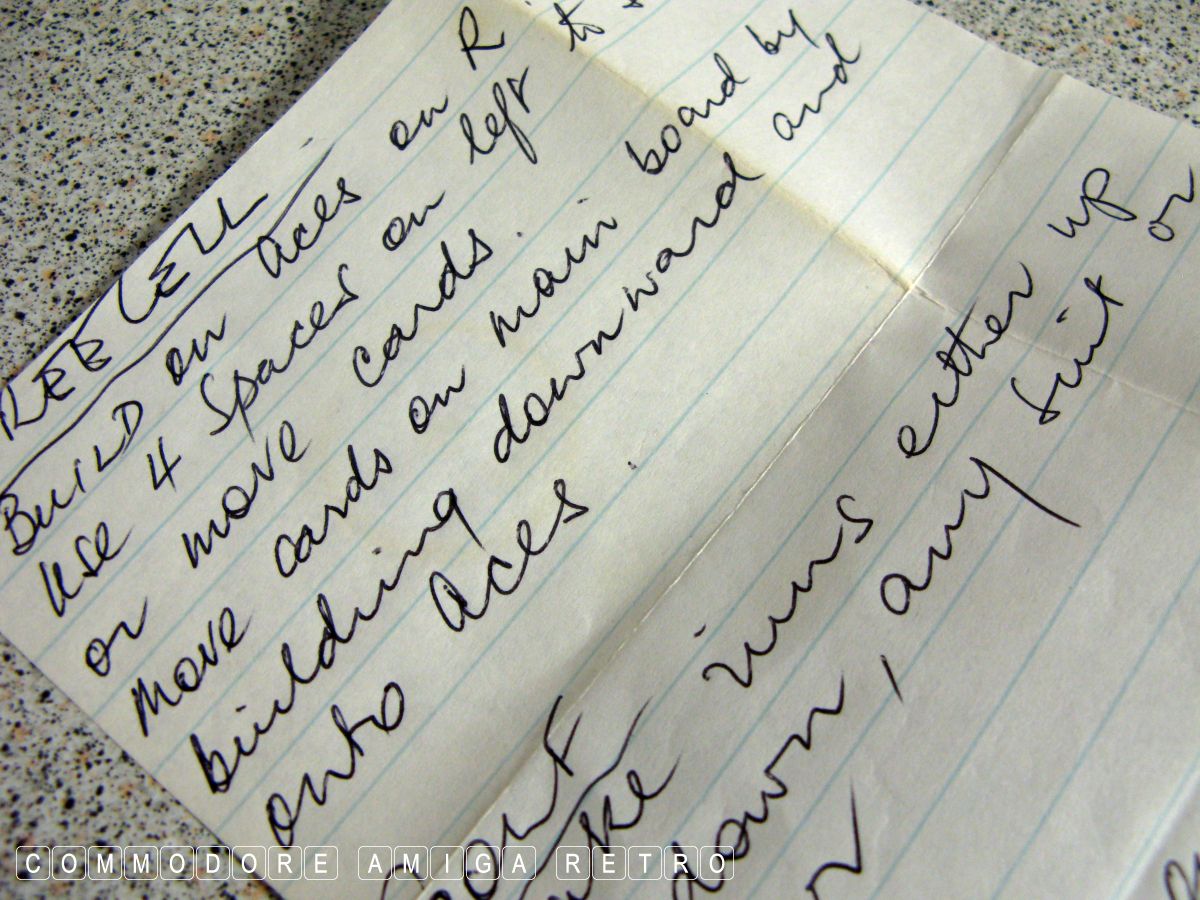 REE CELL
BUILD on aces on R
use 4 spaces on left to
or move cards.
move cards on main board by
building downward and
onto aces.
runs either up
down, any suit or
COMMODORE AMIGA RETRO